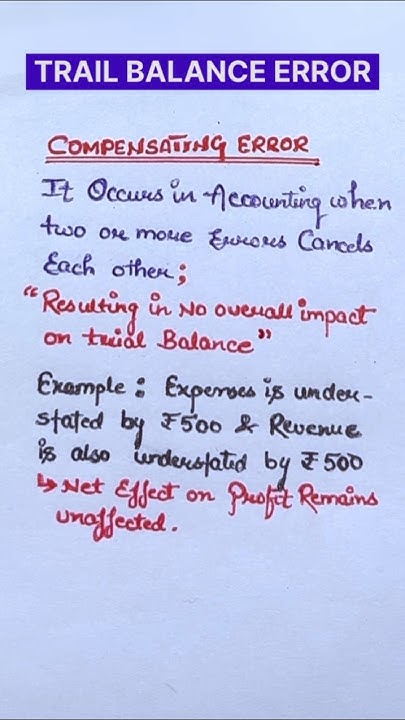 TRAIL BALANCE ERROR
COMPENSATING ERROR
It Occurs in Accounting when
two or more Errors Cancels
Each other;
"Resulting in No overall impact
on trial Balance"
Example: Expenses is under-
stated by ₹500 & Revenue
is also understated by ₹500
↳ Net Effect on Profit Remains
unaffected.